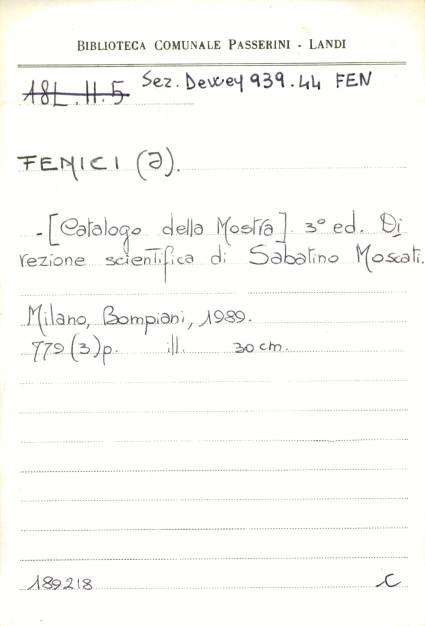 BIBLIOTECA COMUNALE PASSERINI - LANDI
18L.II.5 Sez. Dewey 939.44 FEN
FENICI (I).
- [Catalogo della Mostra]. 3° ed. Di
rezione scientifica di Sabatino Moscati.
Milano, Bompiani, 1989.
779 (3) p. ill. 30 cm.
189218 C